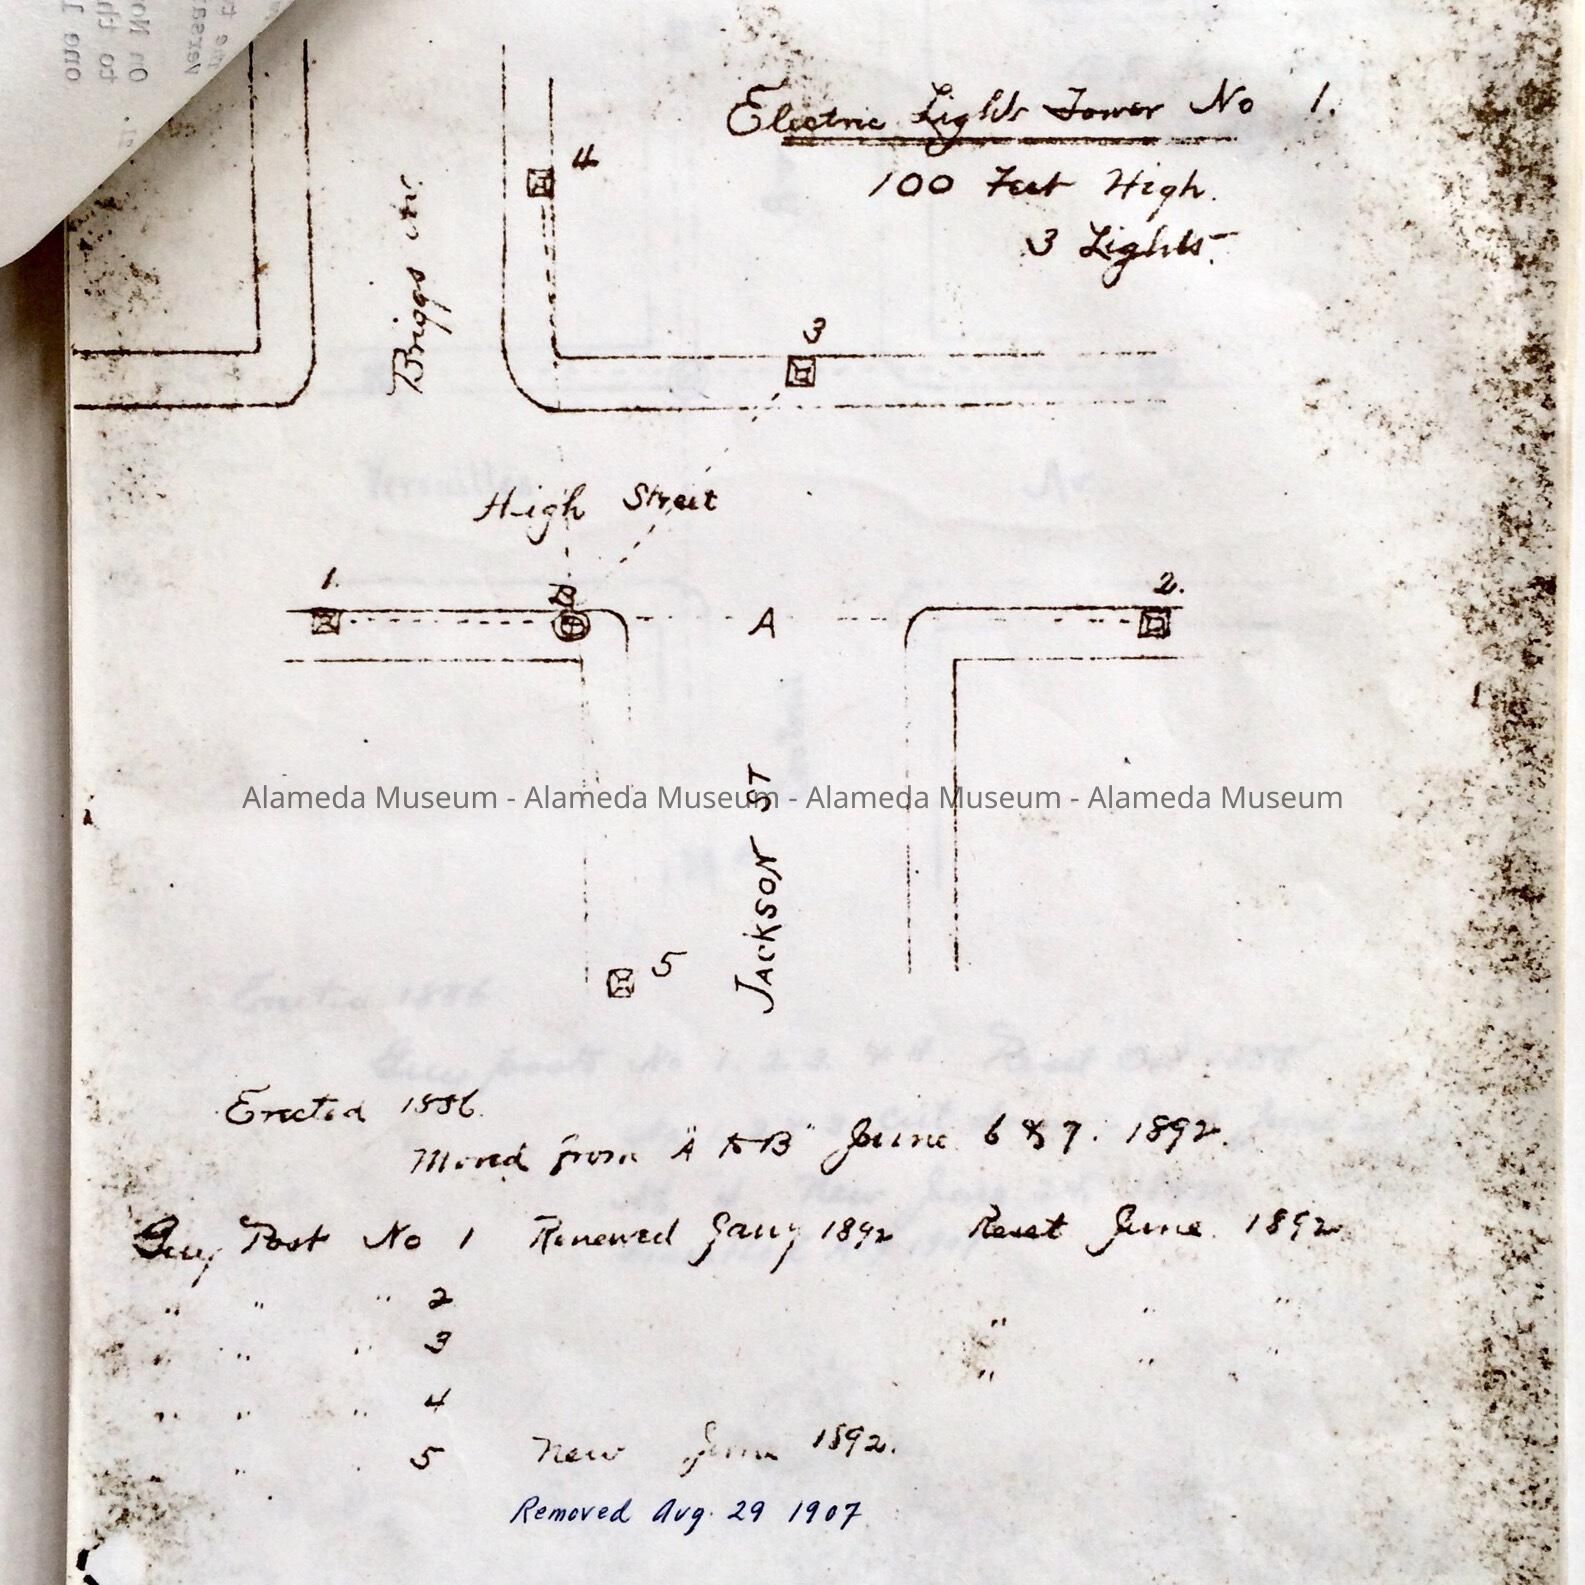 Electric Lights Tower No 1.
100 Feet High.
3 Lights.
4
Briggs Av.
3
High Street
1.
B
A
2.
Alameda Museum - Alameda Museum - Alameda Museum - Alameda Museum
JACKSON ST
5
Erected 1886.
Moved from "A to B" June 6 & 7. 1892.
Guy Post No 1 Renewed Jany 1892 Reset June 1892
" " " 2 " " "
" " " 3 " " "
" " " 4
" " " 5 New June 1892.
Removed Aug. 29 1907